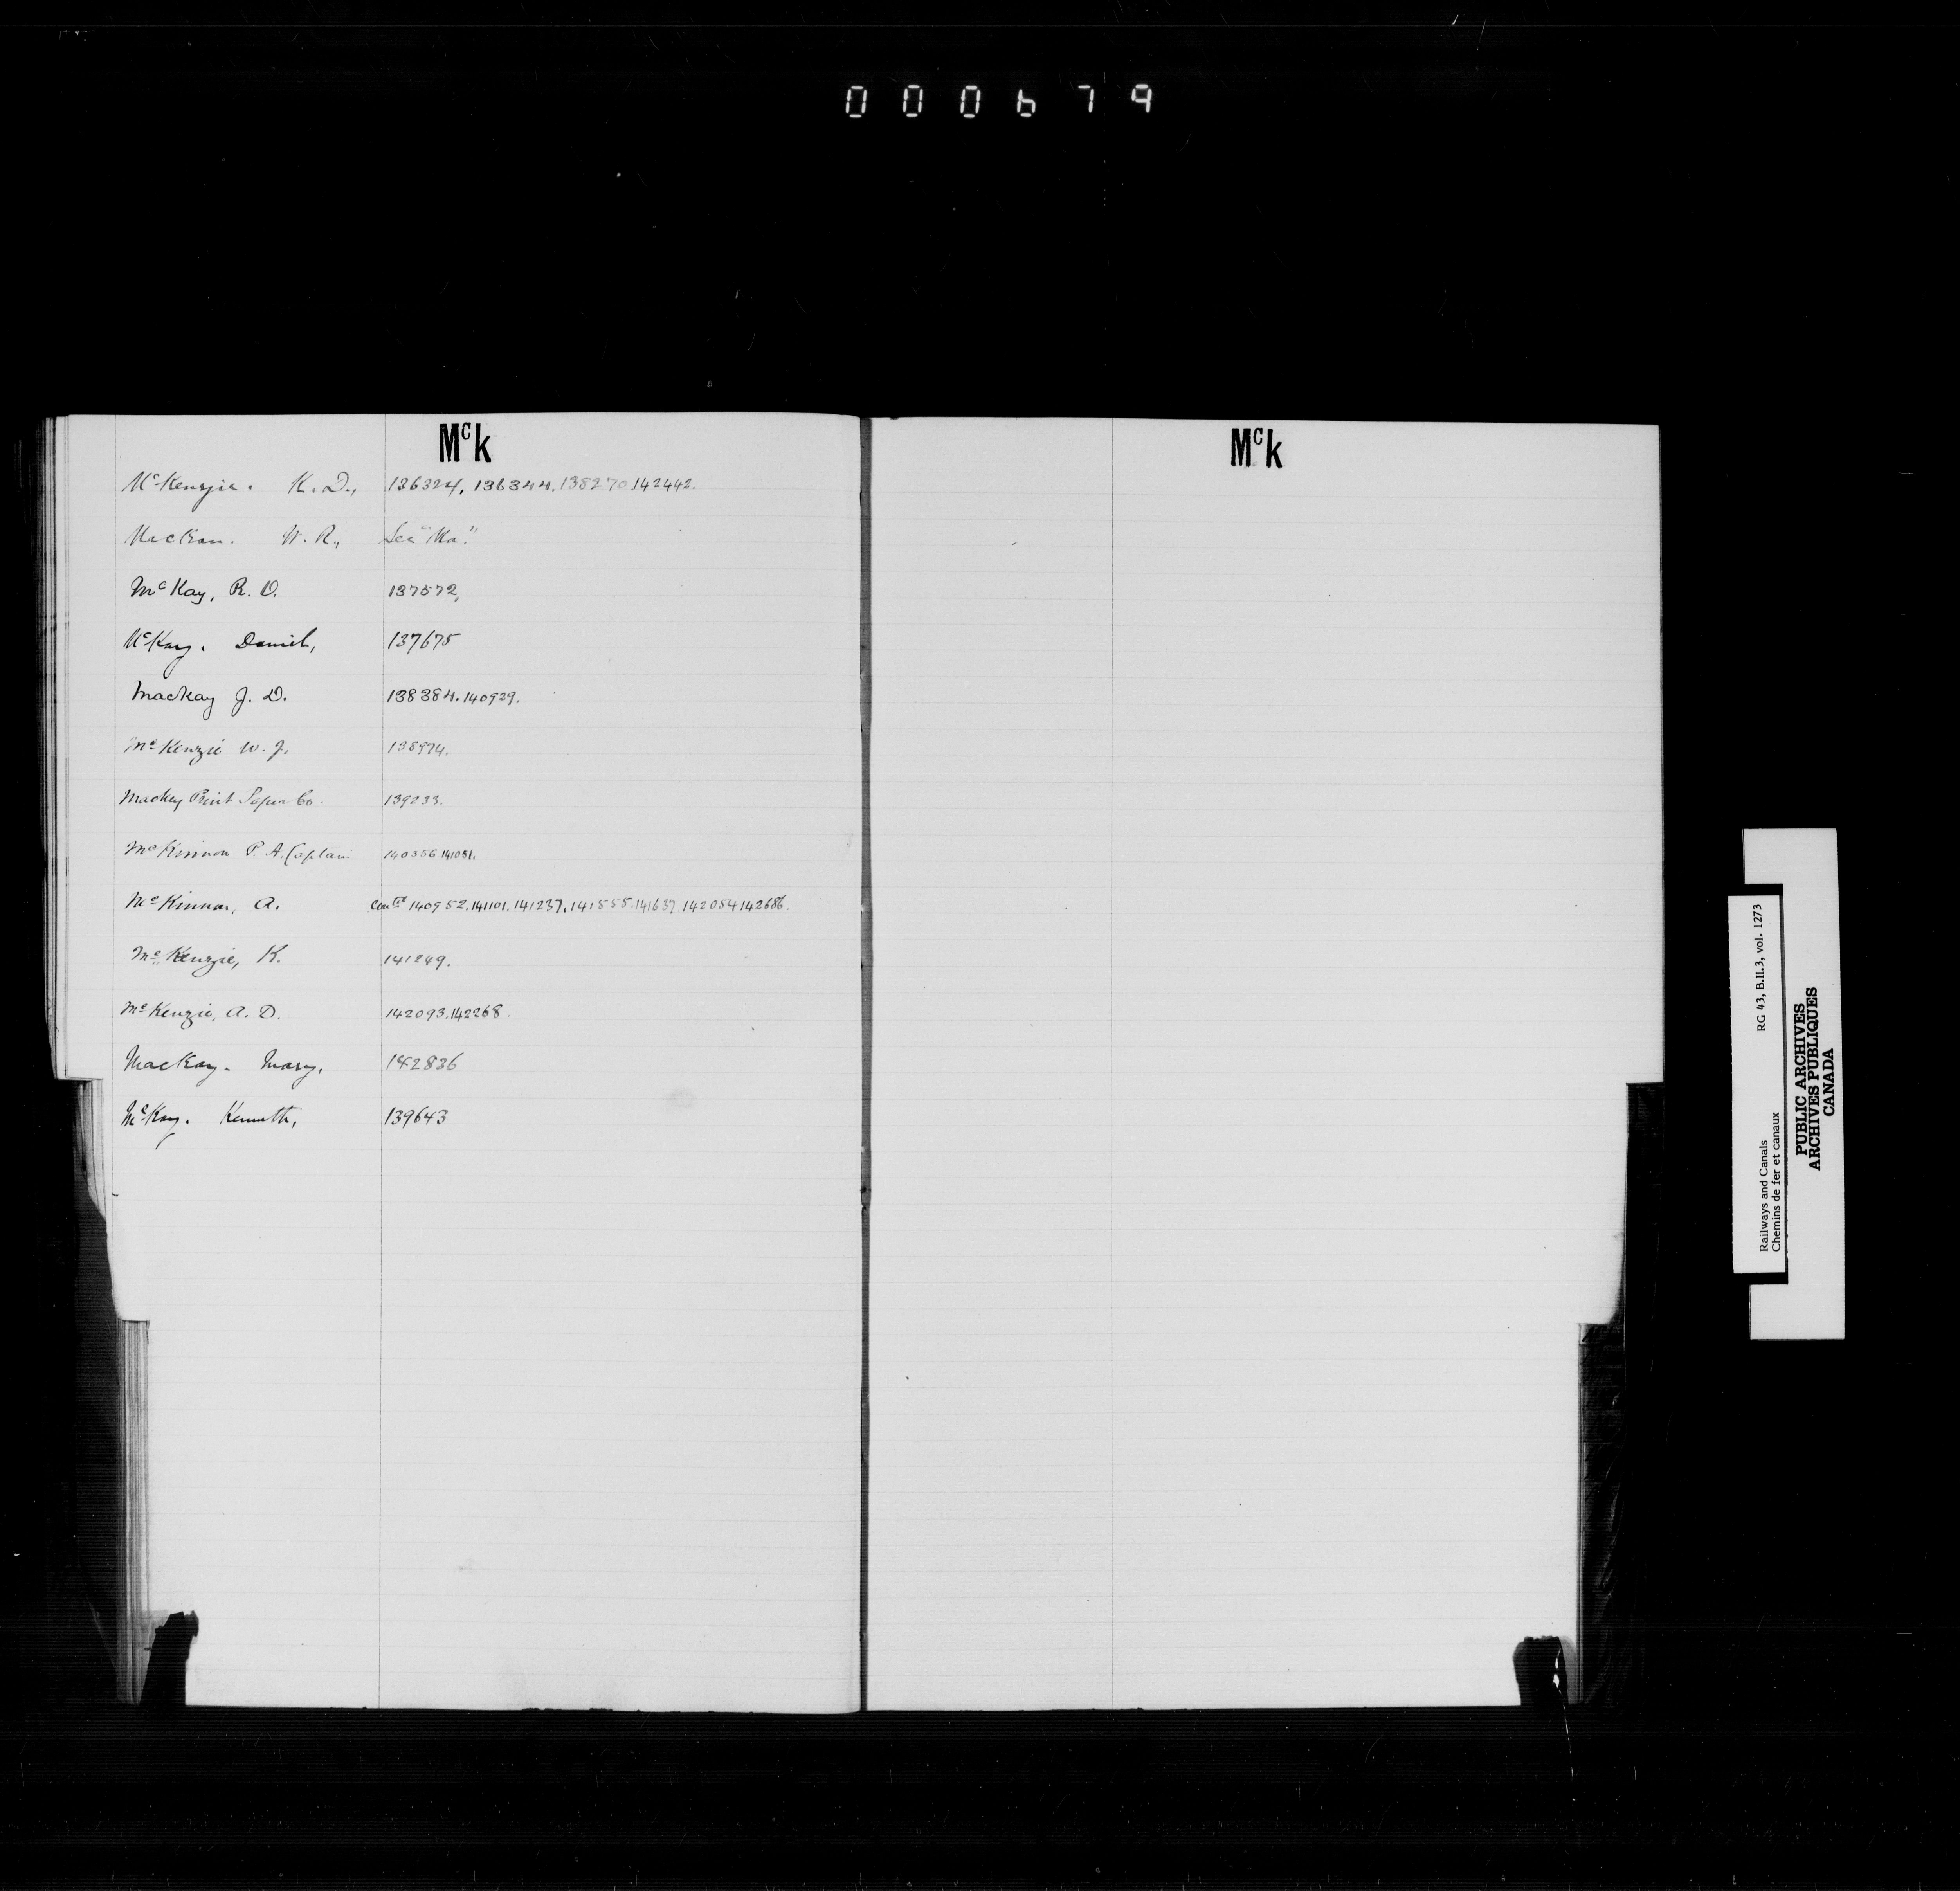 000679
McK
McKenzie. K. D., 136324, 136344, 138270, 142442.
W. R., See "Ma."
McKay, R. D. 137572,
McKay. Daniel, 137675
MacKay J. D. 138384. 140929.
McKenzie W. J. 138974.
Mackey Print Paper Co. 139233.
McKinnon P. A. Captain 140356 141051.
McKinnon, A. 140952. 141101. 141237. 141555. 141637. 142054 142686.
McKenzie, K. 141249.
McKenzie, A. D. 142093. 142268.
MacKay. Mary, 142836
McKay. Kenneth, 139643
McK
Railways and Canals RG 43, B.II.3, vol. 1273
Chemins de fer et canaux
PUBLIC ARCHIVES
ARCHIVES PUBLIQUES
CANADA